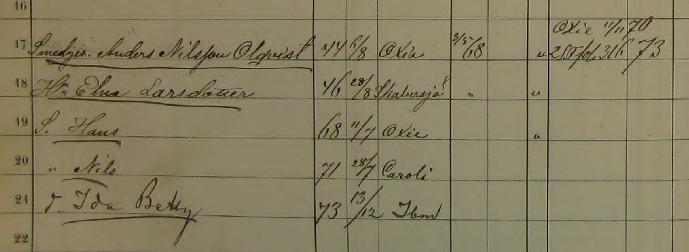 16
Oxie 11/11 70
17 Smedges. Anders Nilsson Olqvist 44 5/8 Oxie 3/5 68 " 28 fol. 316 73
18 H. Elna Larsdotter 46 28/8 Skabersjö " "
19 S. Hans 68 11/7 Oxie "
20 " Nils 71 28/7 Caroli
21 d. Ida Betsy 73 13/12 Ibm
22